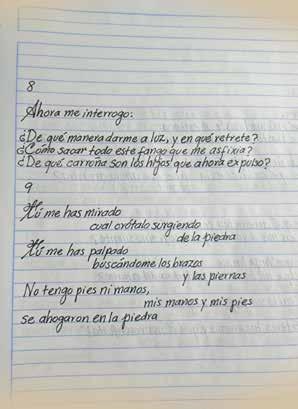 8
Ahora me interrogo:
¿De qué manera darme a luz, y en qué retrete?
¿Cómo sacar todo este fango que me asfixia?
¿De qué carroña son los hijos que ahora expulso?
9
Tú me has mirado
cual crótalo surgiendo
de la piedra
Tú me has palpado
buscándome los brazos
y las piernas
No tengo pies ni manos,
mis manos y mis pies
se ahogaron en la piedra